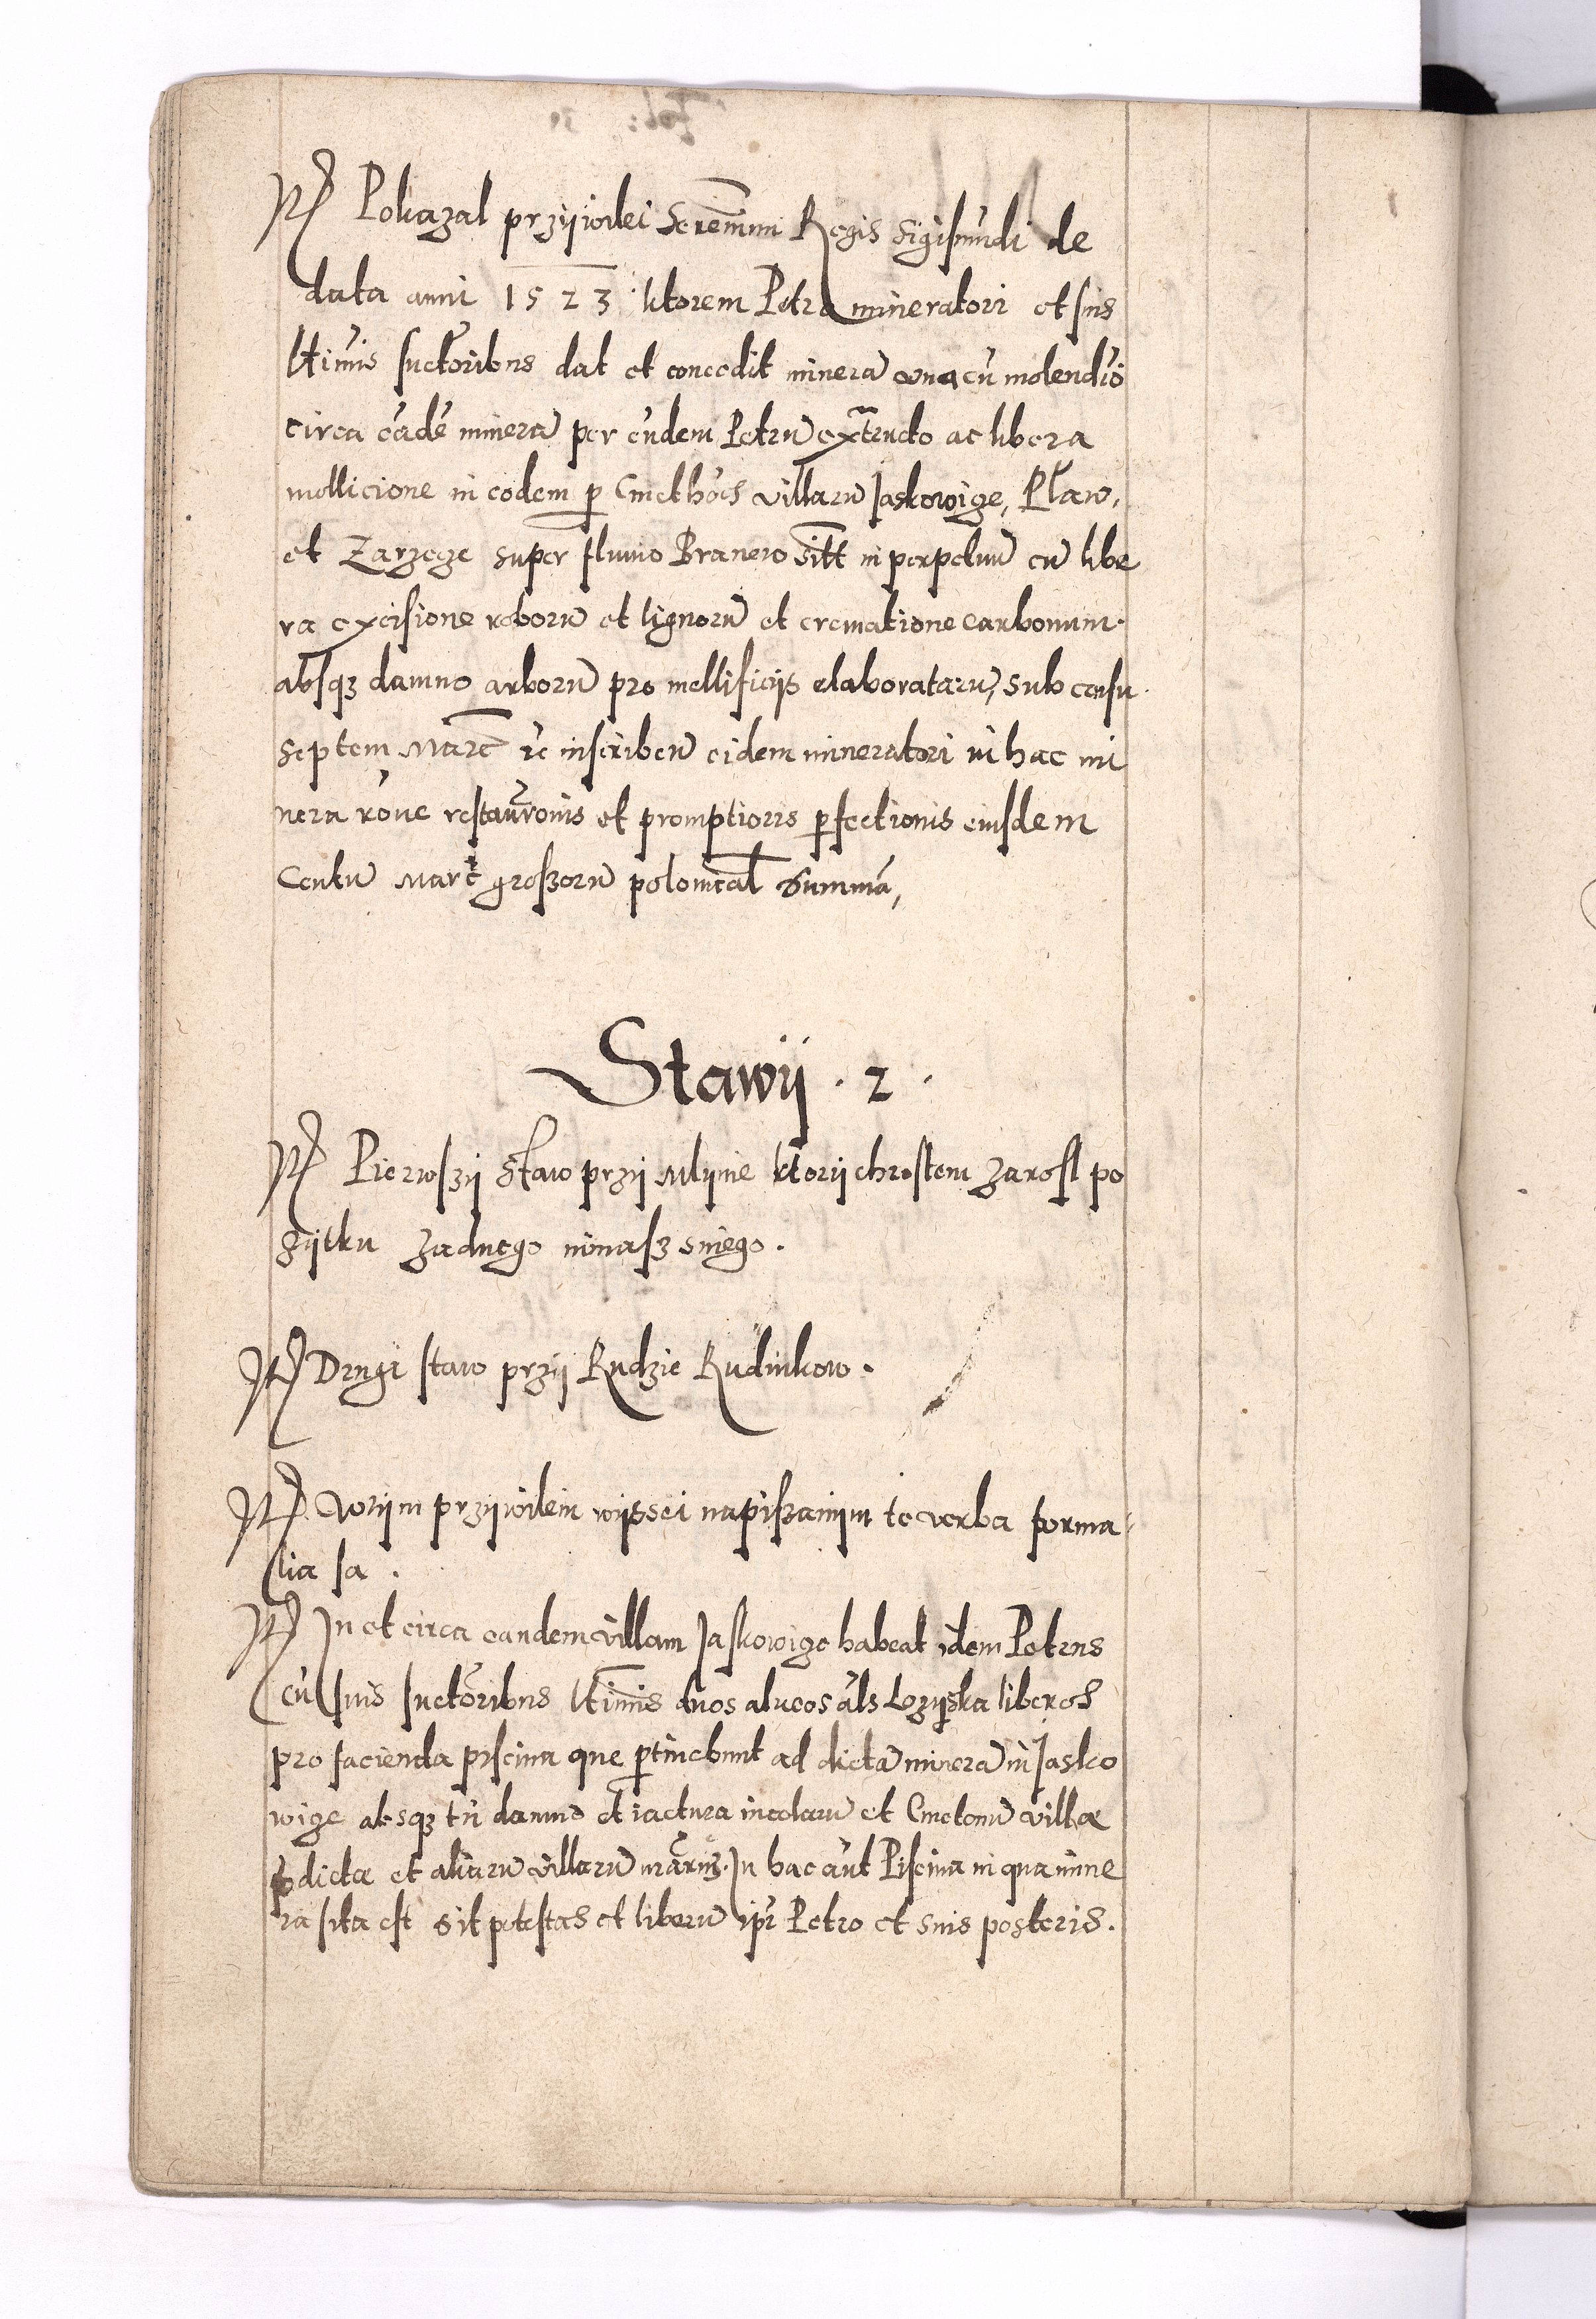 Itm Pokazal przÿwilei Serenimi Regis Sigismūdi de
data anni 1523 ktorem Petro mineratori et suis
ltimis suctōribus dat et concedit minerā vna cū molendīo
circa eādē minerā per eūdem Petrū extructo ac libera
mollicione in eodem p Cmethões villarū Jaskowize, Plaw,
et Zarzeze super fluuio Branew sitt in perpetuū cū libe
ra excisione roborū et lignorū et crematione carbonum
absqz damno arborū pro mellificijs elaboratarū, sub censu
septem Marc re inscriben eidem mineratori in hac mi
nera rōne restaurōnis et promptioris pfectionis eiusdem
Centū Marc groszorū polonical Summā,
Stawÿ . 2 .
Itm Pierwszÿ staw przÿ Mlÿnie ktorÿ chrostem zarosl po
zÿtku zadnego nimasz sniego .
Itm Drugi staw przÿ Rudzie Rudnikow .
Itm Wtÿm przÿwileiu wÿssei napiszanÿm te verba forma
lia sa .
Itm In et circa eandem villam Jaskowize habeat idem Petrus
cū suis suctōribus ltimis duos alueos āls Lozÿska liberos
pro facienda piscina que ptinebunt ad dictā minerā in Jasko
wize absqz tn damno et iactura incolarū et Cmetonū villæ
pdictæ et aliarū villarū nrarū. In hac aūt Piscina in qua mine
ra sita est sit potestas et liberū ipi Petro et suis posteris .